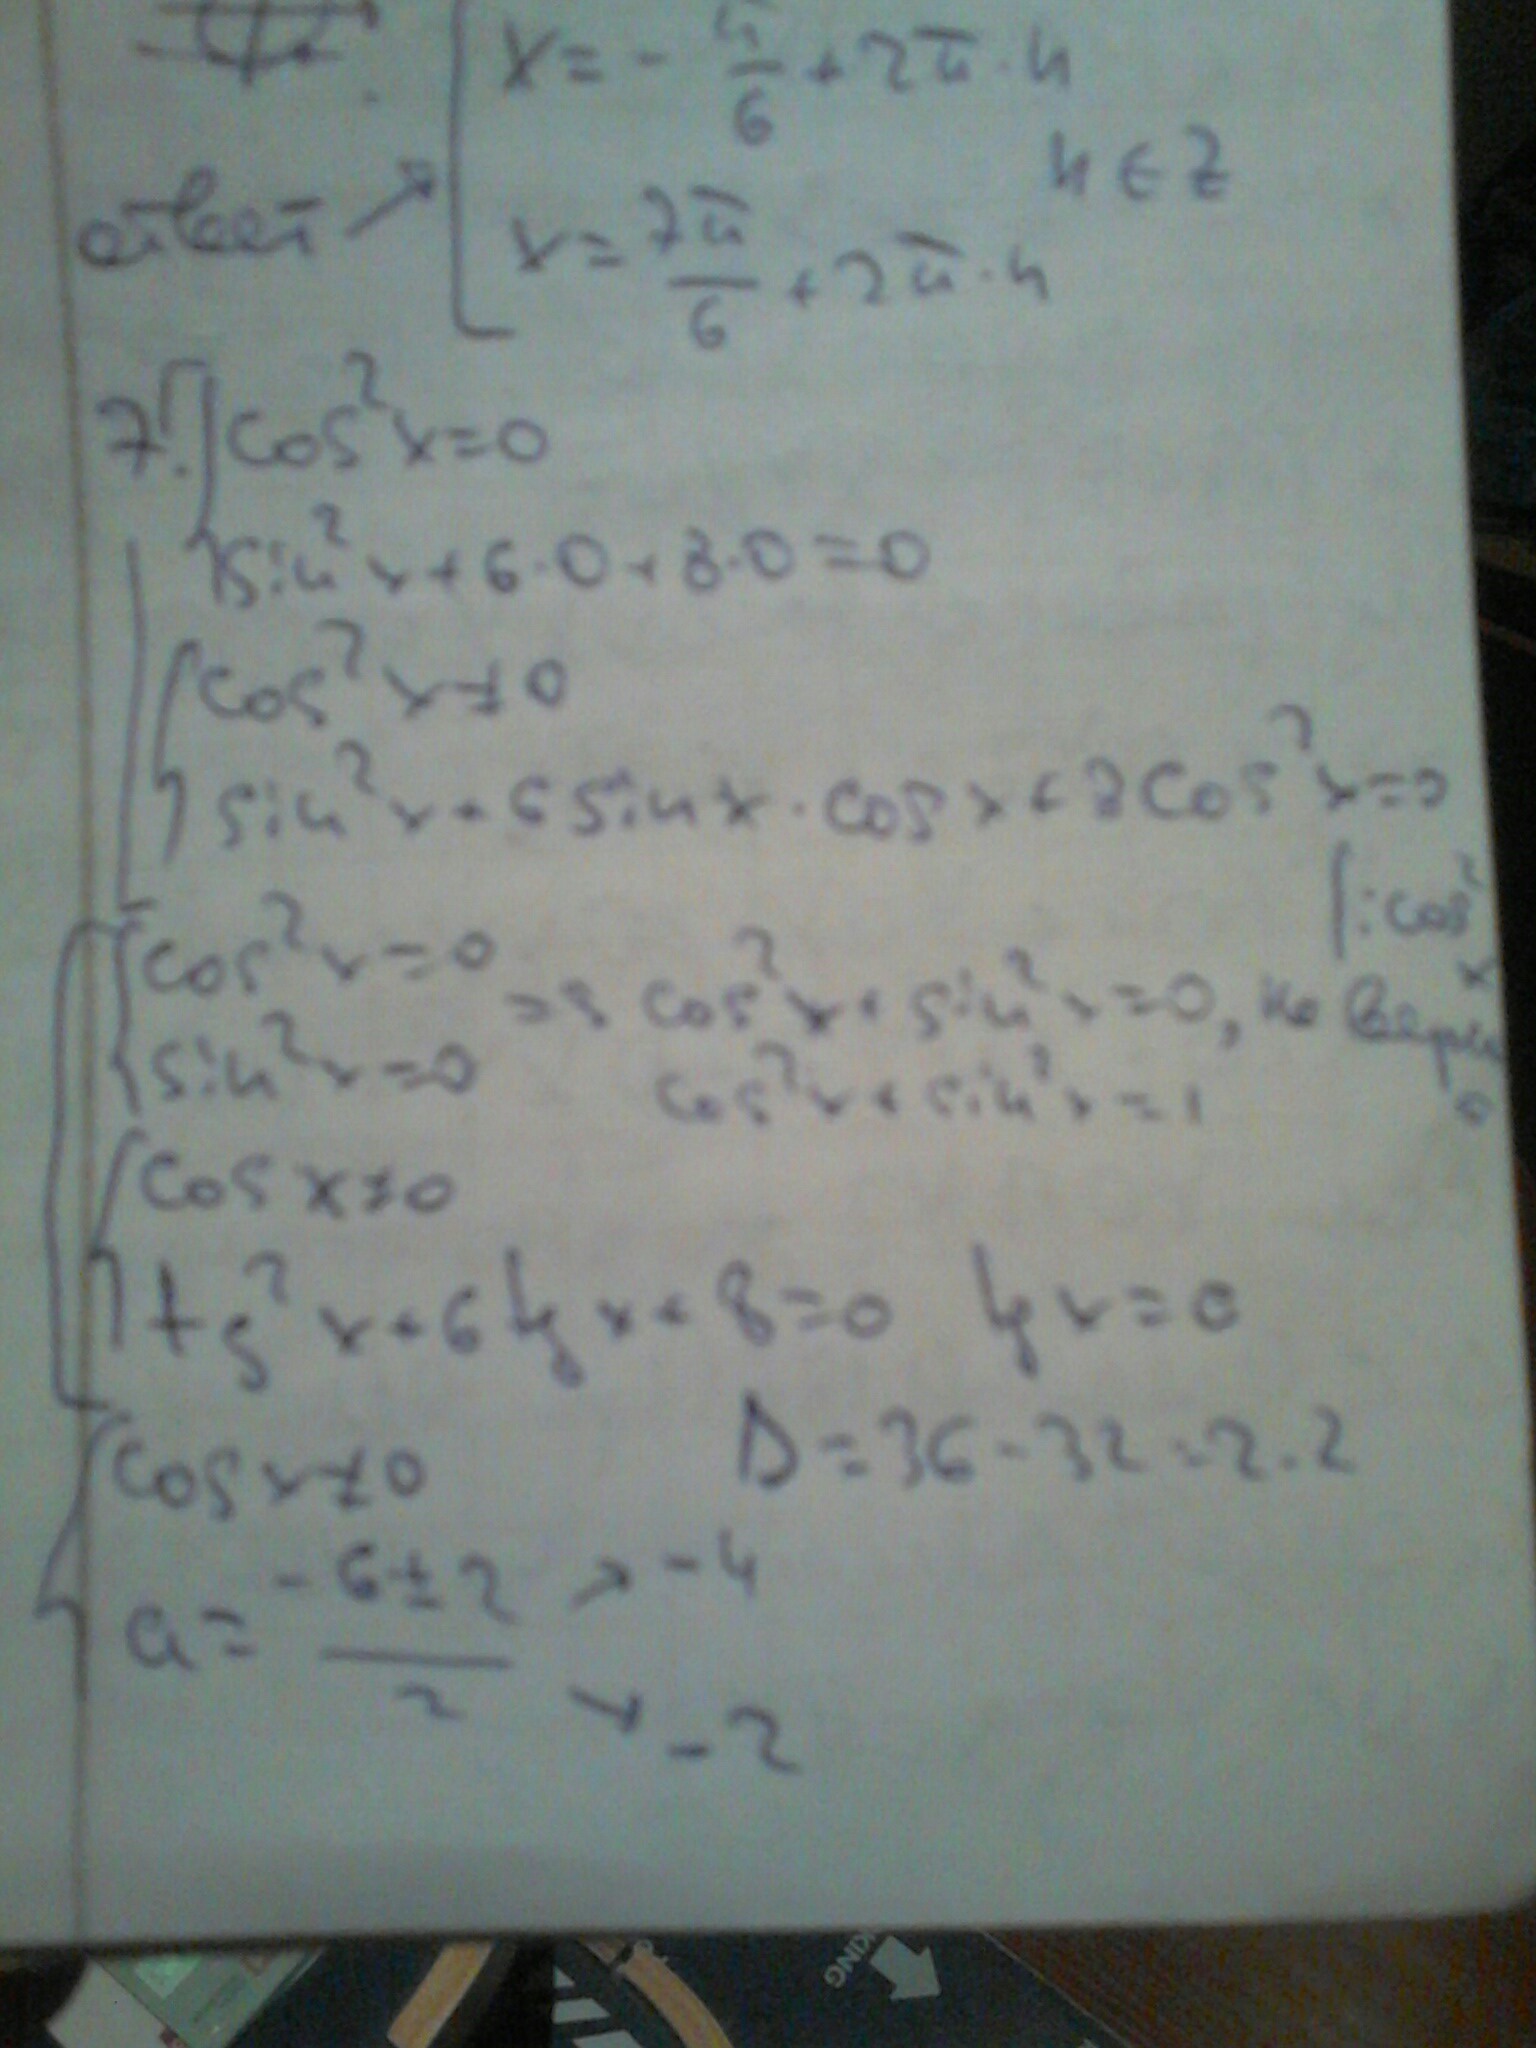 x = - π/6 + 2π·n
n ∈ Z
ответ → x = 7π/6 + 2π·n
7. cos²x=0
sin²x+6·0+8·0=0
cos²x≠0
sin²x+6sinx·cosx+8cos²x=0
|:cos²x
cos²x=0
sin²x=0
=> cos²x+sin²x=0, но верно
cos²x+sin²x=1
cosx≠0
tg²x+6tgx+8=0 tgx=a
cosx≠0 D=36-32=2·2
a = (-6±2)/2 ↗ -4
↘ -2
KING